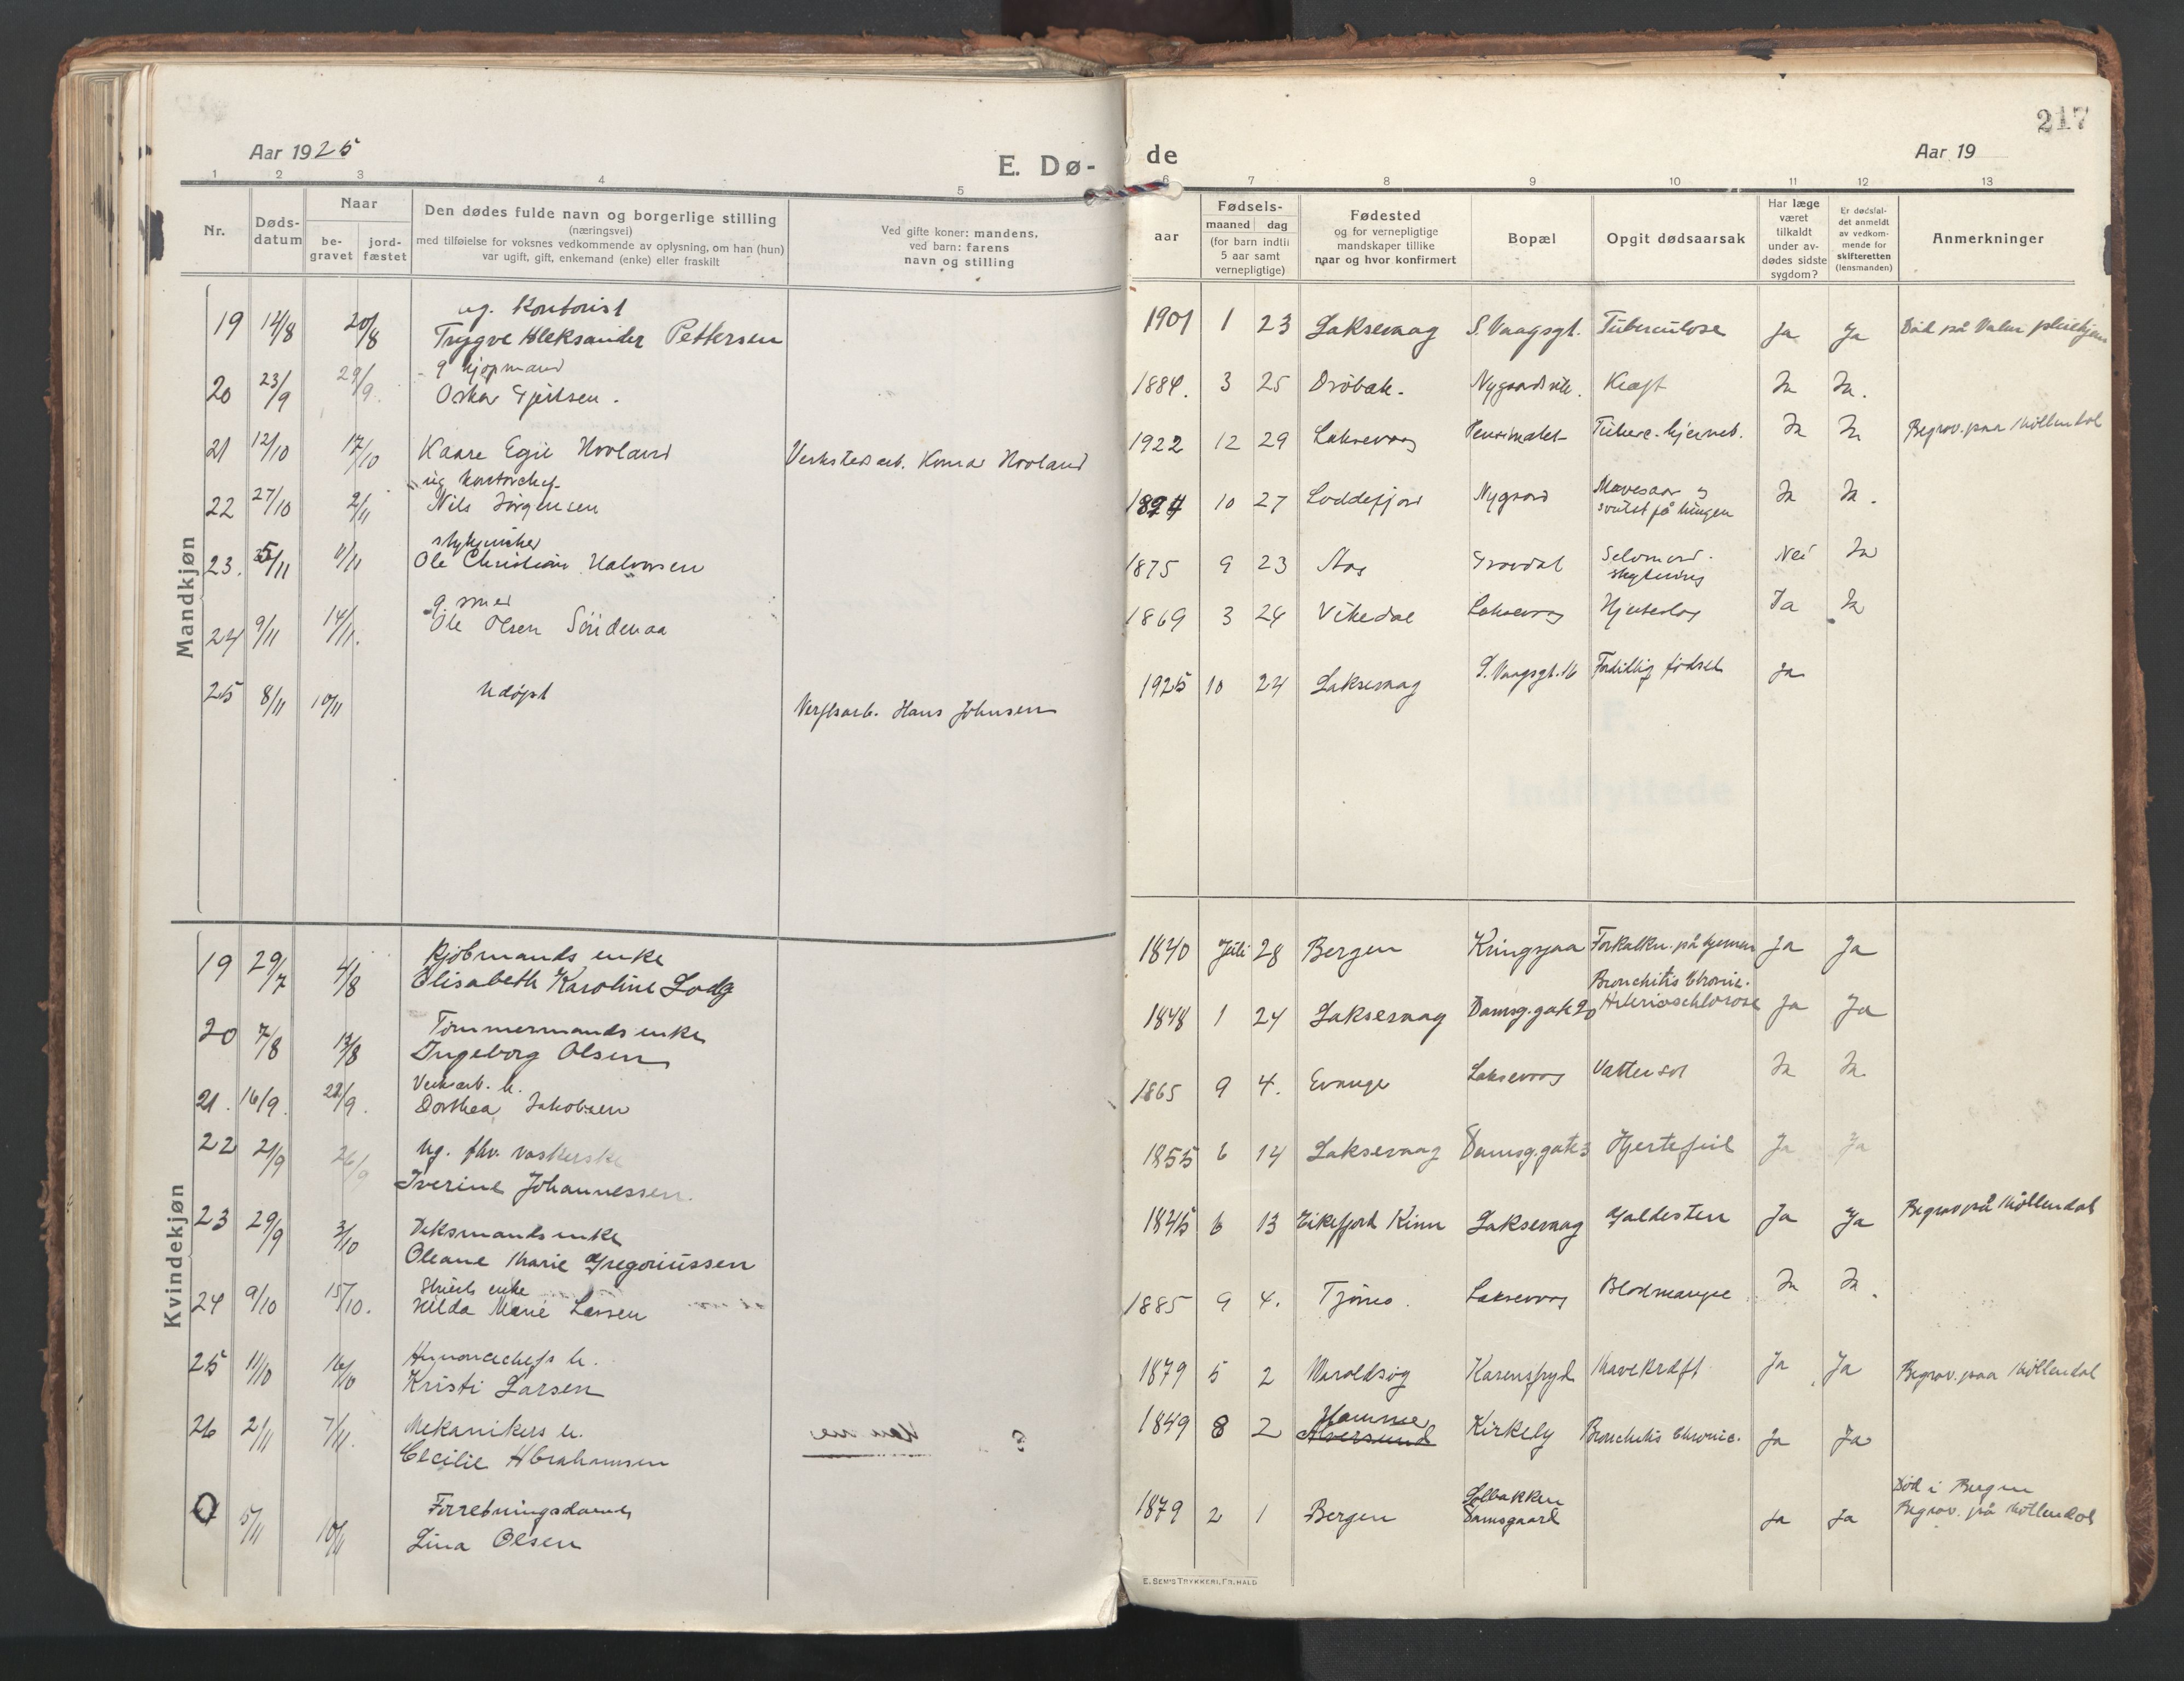 217
Aar 1925
E. Dø-
de
Aar 19
1 2 3 4 5 6 7 8 9 10 11 12 13
Nr.
Døds-
datum
Naar
be-
gravet
jord-
fæstet
Den dødes fulde navn og borgerlige stilling
(næringsvei)
med tilføielse for voksnes vedkommende av oplysning, om han (hun)
var ugift, gift, enkemand (enke) eller fraskilt
Ved gifte koner: mandens,
ved barn: farens
navn og stilling
aar
Fødsels-
maaned dag
(for barn indtil
5 aar samt
vernepligtige)
Fødested
og for vernepligtige
mandskaper tillike
naar og hvor konfirmert
Bopæl
Opgit dødsaarsak
Har læge
været
tilkaldt
under av-
dødes sidste
sygdom?
Er dødsfal-
det anmeldt
av vedkom-
mende for
skifteretten
(lensmanden)
Anmerkninger
Mandkjøn
ug. Kontorist
19 12/8 20/8 Trygve Aleksander Pettersen 1901 1 23 Laksevaag S. Vaagsgt. Tuberculose Ja Ja Död på
g kjøpmand
20 23/9 29/9. Oskar Gjertsen. 1884. 3 25 Dröbak. Kræft Ja Ja.
21 12/10 17/10 Kaare Egil Hovland Verkstedarb. Konrad Hovland 1922 12 29 Laksevaag Tuberc. hjerneb. Ja Ja Begrav. paa Möllendal
ug kontorchef
22 27/10 2/11 Nils Jörgensen 10 27 Loddefjord Nygaard Mavesaar og
svulst på lungen Ja Ja.
23. 5/11 11/11 Ole Christian Halvorsen 1875 9 23 Aas Gravdal Selvmord.
skytning Nei Ja
g. smed
24 9/11 14/11. Ole Olsen Söndenaa 1869 3 24 Vikedal Laksevaag Hjerteslag Ja Ja
25 8/11 10/11 Udöpt Verftsarb. Hans Johnsen 1925 10 24 Laksevaag S. Vaagsgt. 16 Fortidlig födsel Ja
Indflyttede
Kvindekjøn
Kjöbmands enke
19 29/7 4/8 Elisabeth Karoline 1840 Juli 28 Bergen Kringsjaa Forkalkn. på hjernen Ja Ja
Tömmermands enke
20 7/8 13/8 Ingeborg Olsen 1848 1 24 Laksevaag Damsg. gate 20 Bronchitis Chronic.
Arterioschlorose Ja Ja
Verksarb. h.
21. 16/9. 22/9. Dorthea Jakobsen 1865 9 4. Evanger Laksevaag Vattersot Ja Ja
Ug. fhv. vaskerske
22 21/9 26/9 Iverine Johannessen. 1855 6 14 Laksevaag Damsg. gate 3 Hjertefeil Ja Ja
23 29/9 3/10 Oleane Marie Gregoriussen 1845 6 13 Eikefjord Kinn Laksevaag Galdesten Ja Ja Begrav på Möllendal
enke
24 9/10 15/10. Hilda Marie Larsen 1885 9 4. Tjömö. Laksevaag Blodmangel Ja Ja.
Annoncechefs h.
25 11/10 16/10 Kristi Larsen 1879 5 2 Varaldsöy Karensfryd Mavekræft Ja Ja Begrav. paa Möllendal
Mekanikers h.
26 2/11 7/11. Cecilie Abrahamsen 1849 8 2 Hamre
Alversund Kirkely Bronchitis Chronic. Ja Ja
Forretningsdame
0 5/11 10/11 Lina Olsen 1879 2 1 Bergen Solbakken
Damsgaard Ja Ja Död i Bergen
Begrav. på Möllendal
E. SEM'S TRYKKERI, FR.HALD